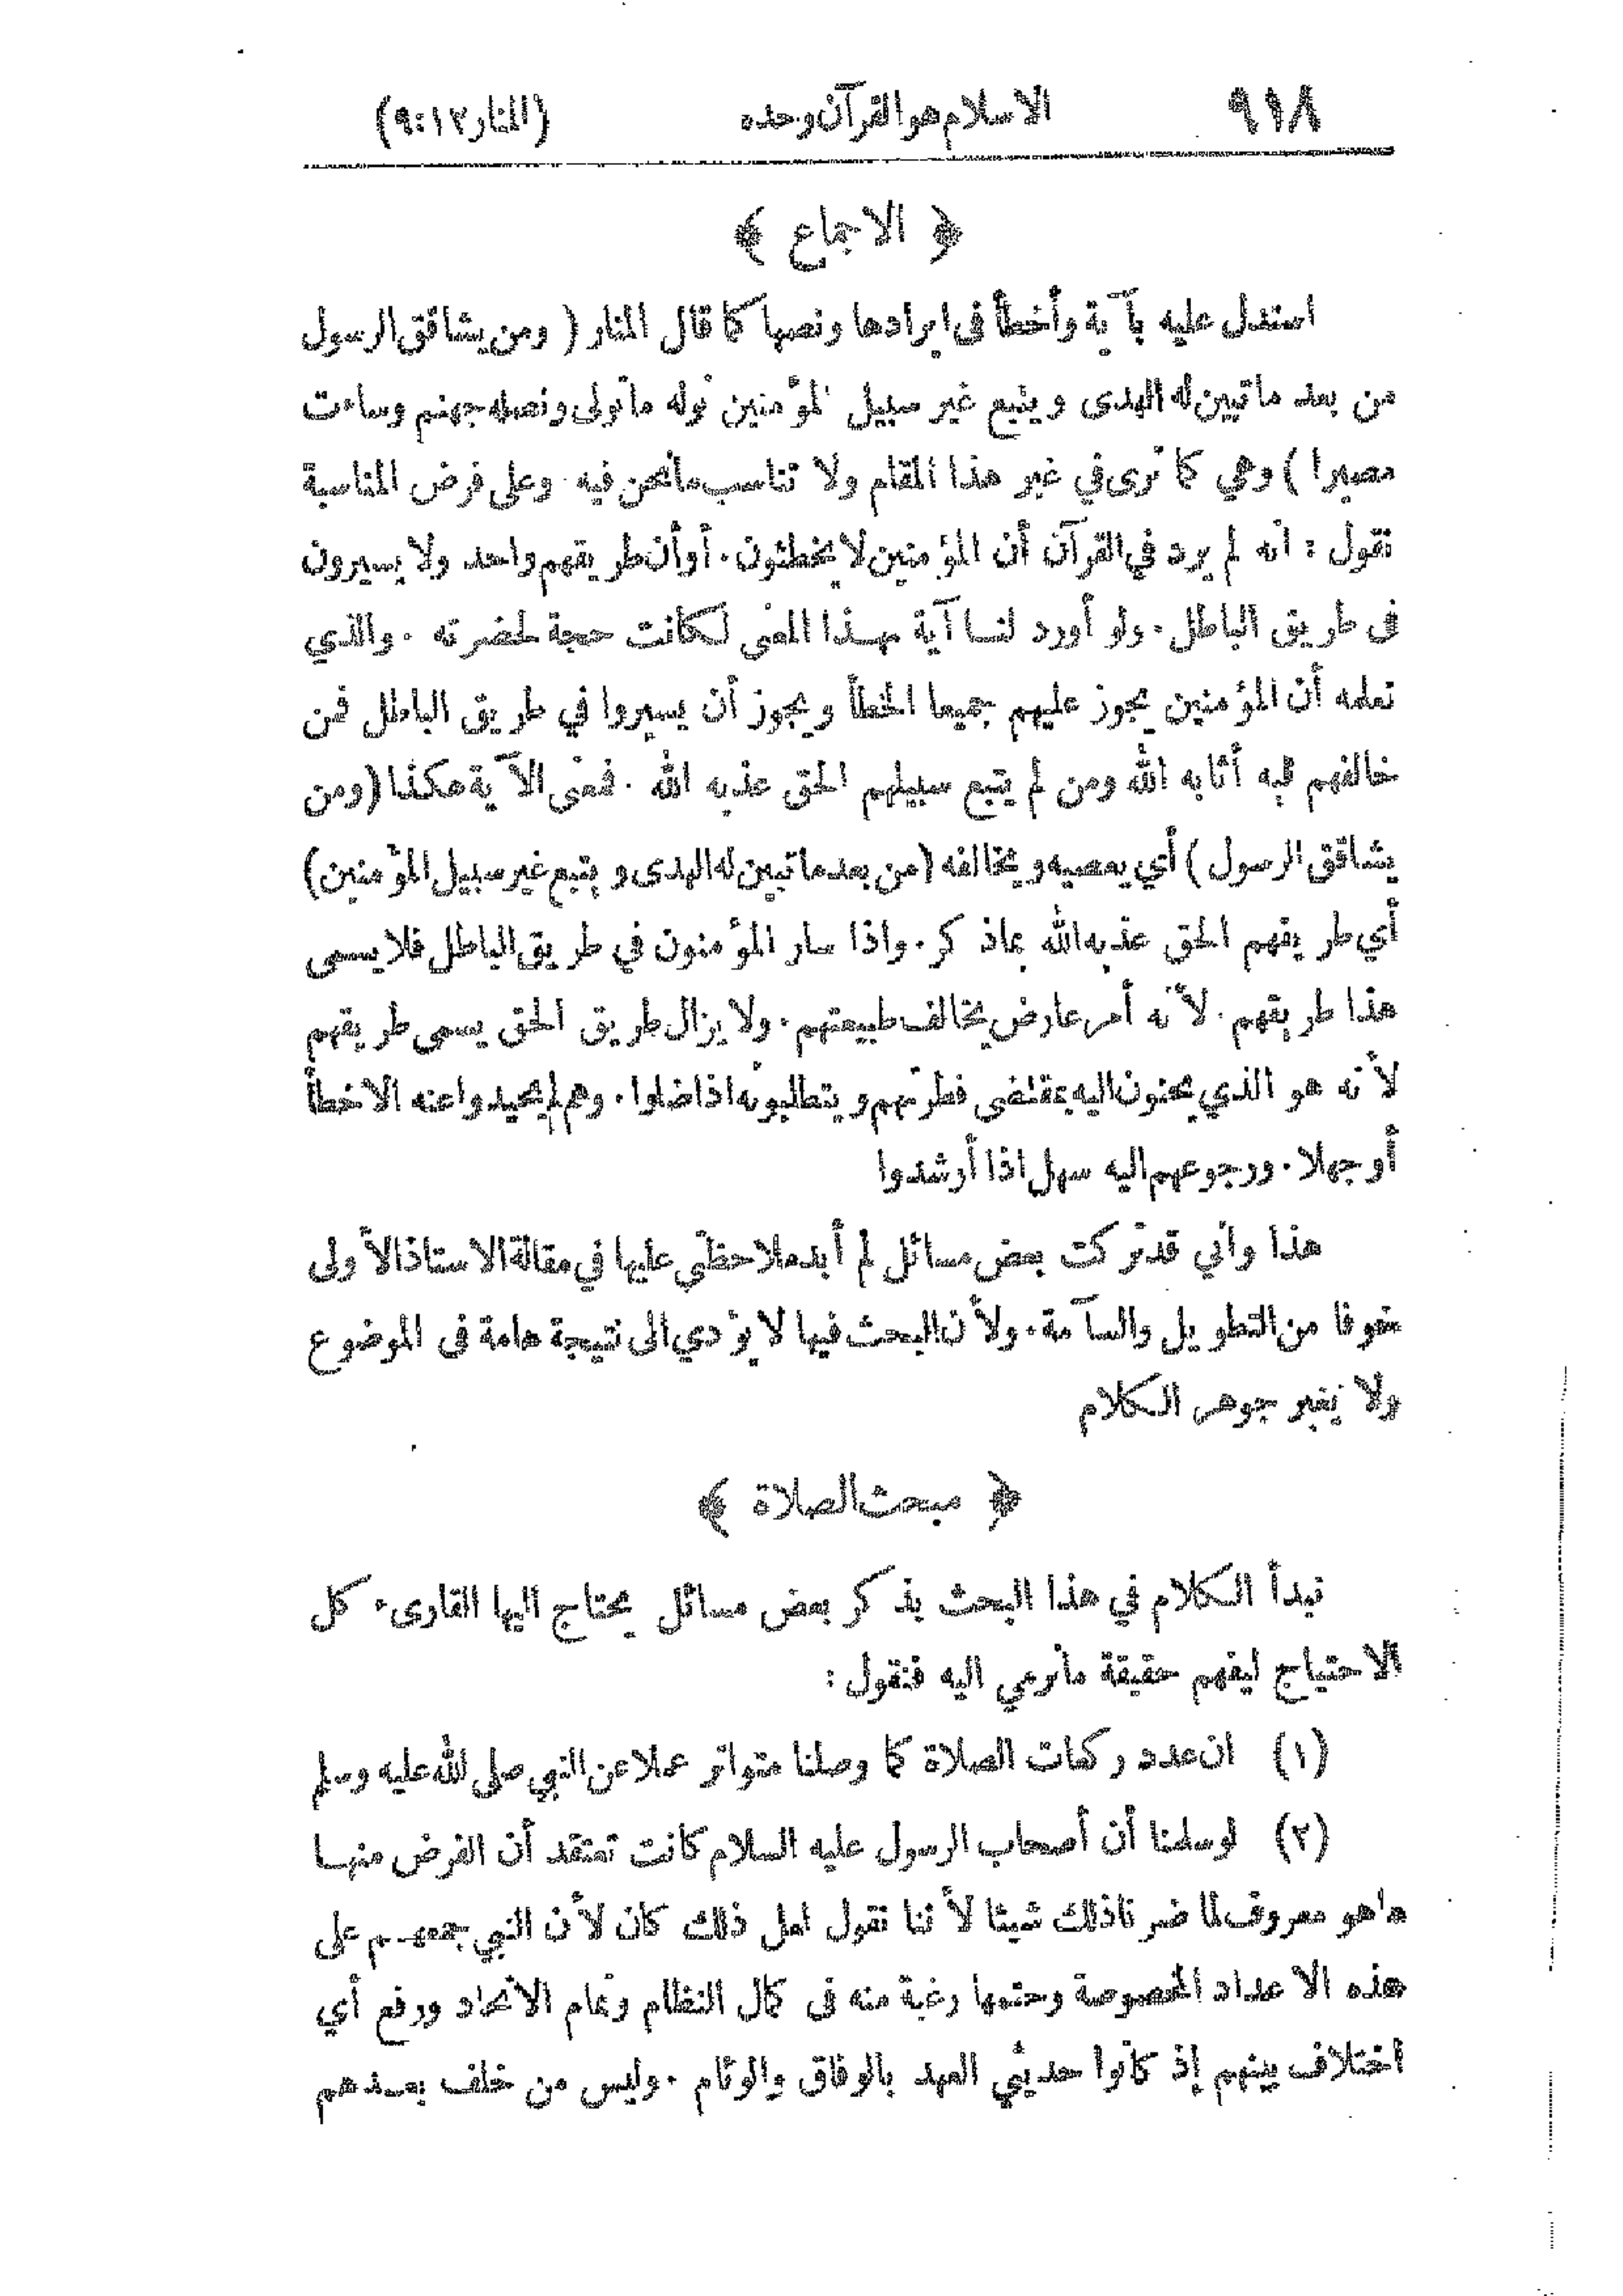 ٩١٨ الاسلام هو القرآن وحده (المنار ١٢ : ٩)
﴿ الاجماع ﴾
استدل عليه بآية وأخطأ في ايرادها ونصها كما قال المنار ( ومن يشاقق الرسول
من بعد ما تبين له الهدى ويتبع غير سبيل المؤمنين نوله ما تولى ونصله جهنم وساءت
مصيرا ) وهي كما ترى في غير هذا المقام ولا تناسب ما نحن فيه وعلى فرض المناسبة
نقول : انه لم يرد في القرآن أن المؤمنين لا يخطئون . أو أن طريقهم واحد ولا يسيرون
في طريق الباطل . ولو أورد لنا آية بهذا المعنى لكانت حجة لحضرته . والذي
نعلمه أن المؤمنين يجوز عليهم جميعا الخطأ ويجوز أن يسيروا في طريق الباطل فمن
خالفهم فيه أثابه الله ومن لم يتبع سبيلهم الحق عذبه الله . فمعنى الآية هكذا (ومن
يشاقق الرسول ) أي يعصيه ويخالفه (من بعد ما تبين له الهدى ويتبع غير سبيل المؤمنين)
أي طريقهم الحق عذبه الله بماذكر . واذا سار المؤمنون في طريق الباطل فلا يسمى
هذا طريقهم . لأنه أمر عارض يخالف طبيعتهم . ولا يزال طريق الحق يسمى طريقهم
لأنه هو الذي يحنون اليه بمقتضى فطرتهم ويتطلبونه اذا ضلوا . وهم لم يحيدوا عنه الا خطأ
أو جهلا . ورجوعهم اليه سهل اذا أرشدوا
هذا واني قد تركت بعض مسائل لم أبد ملاحظتي عليها في مقالة الاستاذ الأولى
خوفا من التطويل والسآمة . ولأن البحث فيها لا يؤدي الى نتيجة هامة في الموضوع
ولا يغير جوهر الكلام
﴿ مبحث الصلاة ﴾
نبدأ الكلام في هذا البحث بذكر بعض مسائل يحتاج اليها القارىء كل
الاحتياج ليفهم حقيقة ما نرمي اليه فنقول :
(١) ان عدد ركعات الصلاة كما وصلنا متواتر عملا عن النبي صلى الله عليه وسلم
(٢) لو سلمنا أن أصحاب الرسول عليه السلام كانت تعتقد أن الفرض منها
ما هو معروف لما ضرنا ذلك شيئا لأننا نقول لعل ذلك كان لأن النبي جمعهم على
هذه الاعداد المخصوصة وحتمها رغبة منه في كمال النظام وتمام الاتحاد ورفع أي
اختلاف بينهم إذ كانوا حديثي العهد بالوفاق والوئام . وليس من خلف بعدهم